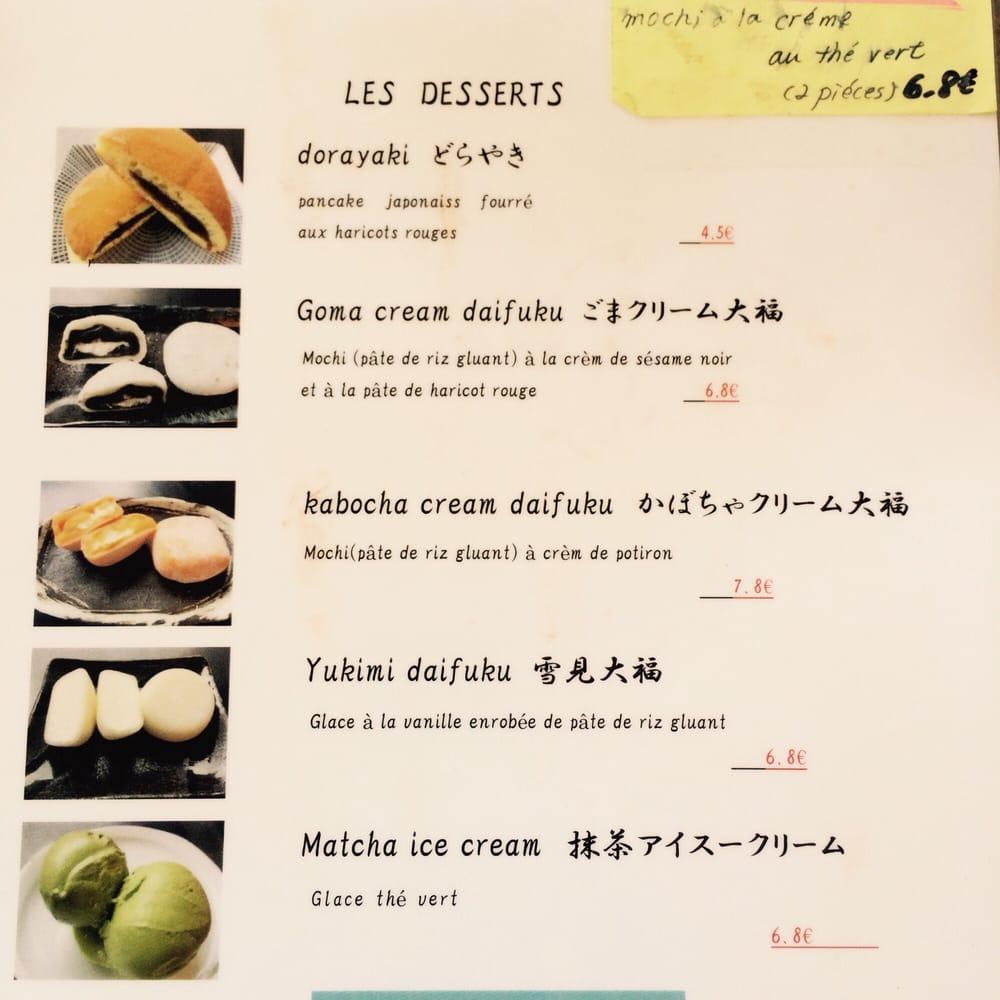 mochi à la créme
au thé vert
(2 piéces) 6.8€
LES DESSERTS
dorayaki どらやき
pancake japonaiss fourré
aux haricots rouges
4.5€
Goma cream daifuku ごまクリーム大福
Mochi (pâte de riz gluant) à la crèm de sésame noir
et à la pâte de haricot rouge
6.8€
kabocha cream daifuku かぼちゃクリーム大福
Mochi(pâte de riz gluant) à crèm de potiron
7.8€
Yukimi daifuku 雪見大福
Glace à la vanille enrobée de pâte de riz gluant
6.8€
Matcha ice cream 抹茶アイスークリーム
Glace thé vert
6.8€